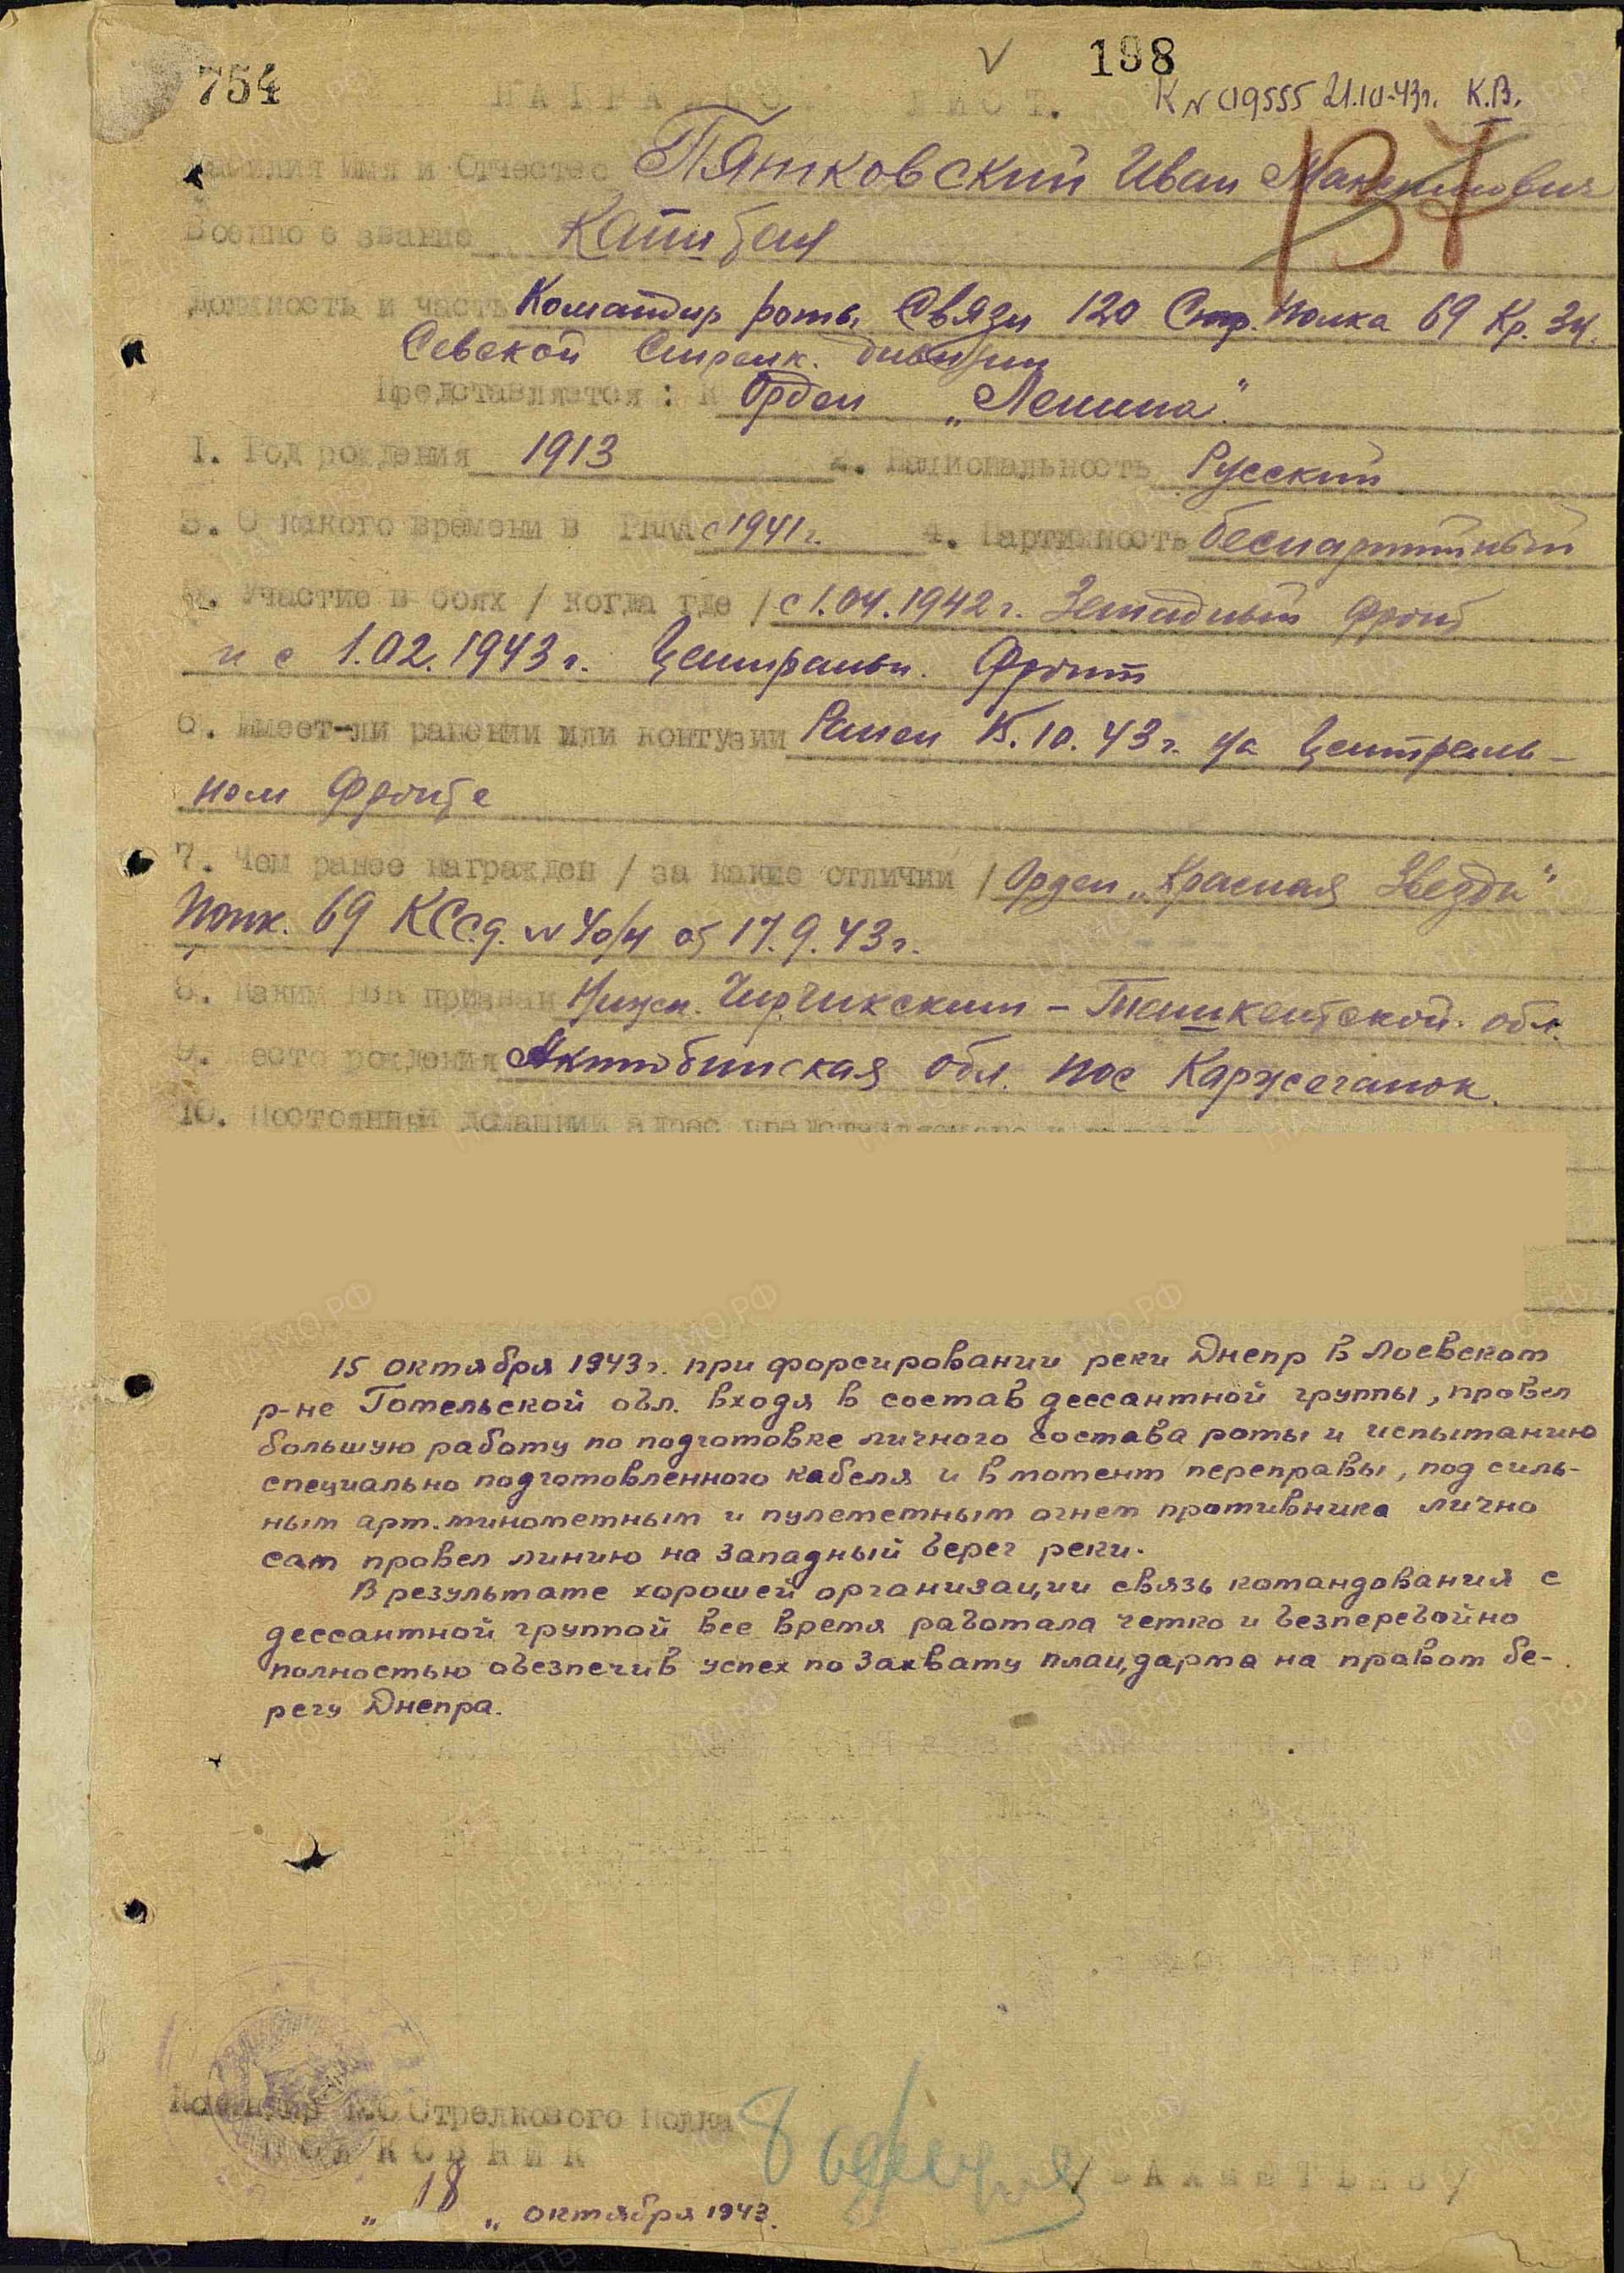 754
198
К № 09555 21.10.43г. К.В.
НАГРАДНОЙ ЛИСТ.
Фамилия имя и Отчество Пятковский Иван Максимович
137
Военное звание
Должность и часть Командир роты Связи 120 Стр. полка 69 Кр. Зн.
Севской Стрелк. дивизии
Представляется: К Орден „Ленина"
1. Год рождения 1913 2. Национальность Русский
3. С какого времени в РККА с 1941г. 4. Партийность беспартийный
5. Участие в боях / когда где / с 1.04.1942г. Западный фронт
и с 1.02.1943г. Центральн. Фронт
6. Имеет-ли ранении или контузии Ранен 15.10.43г. на Централь-
ном Фронте
7. Чем ранее награжден / за какие отличии / Орден „Красная Звезда"
69 КССд. № 40/н от 17.9.43г.
8. Каким РВК призван Нижн. Чирчикским - Ташкентской. обл.
9. Место рождения Актюбинская обл. пос
10. Постоянный домашний адрес представляемого к
15 октября 1943г. при форсировании реки Днепр в Лоевском
р-не Гомельской обл. входя в состав дессантной группы, провел
большую работу по подготовке личного состава роты и испытанию
специально подготовленного кабеля и в момент переправы, под силь-
ным арт. минометным и пулеметным огнем противника лично
сам провел линию на западный берег реки.
В результате хорошей организации связь командования с
дессантной группой все время работала четко и безперебойно
полностью обезпечив успех по захвату плацдарма на правом бе-
регу Днепра.
Командир 120 Стрелкового Полка
ПОЛКОВНИК
„ 18 „ октября 1943.